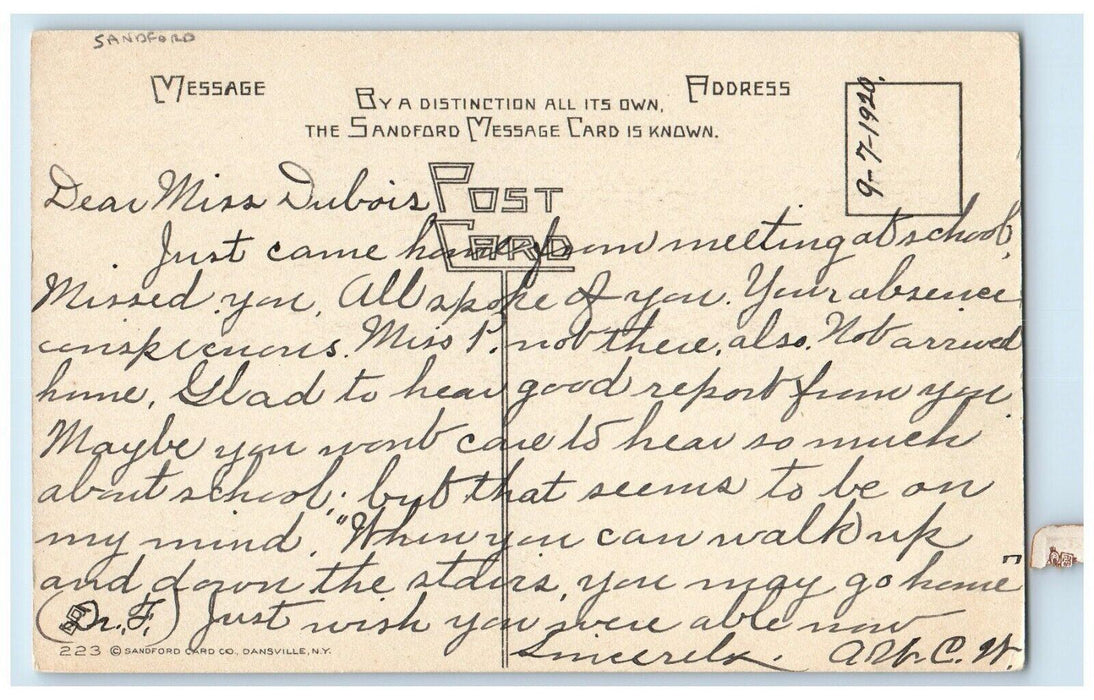 SANDFORD
MESSAGE
ADDRESS
BY A DISTINCTION ALL ITS OWN,
THE SANDFORD MESSAGE CARD IS KNOWN.
9-7-1920.
POST
CARD
Dear Miss Dubois
Just came home from meeting at school,
Missed you, All spoke of you. Your absence
conspicuous. Miss P. not there, also. Not arrived
home, Glad to hear good report from you.
Maybe you wont care to hear so much
about school; but that seems to be on
my mind. "When you can walk up
and down the stairs, you may go home"
(Dr. F.) Just wish you were able now
Sincerely, C. W.
223 © SANDFORD CARD CO., DANSVILLE, N.Y.